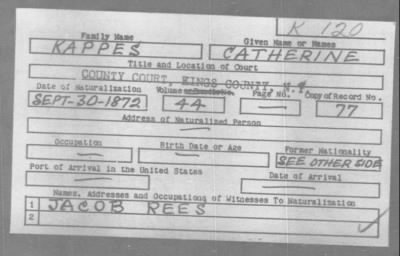 K 120
Family Name Given Name or Names
KAPPES CATHERINE
Title and Location of Court
COUNTY COURT, KINGS COUNTY, N.Y.
Date of Naturalization Volume Page No. Copy of Record No.
SEPT-30-1872 44 — 77
Address of Naturalized Person
—
Occupation Birth Date or Age Former Nationality
— — SEE OTHER SIDE
Port of Arrival in the United States Date of Arrival
— —
Names, Addresses and Occupations of Witnesses To Naturalization
1 JACOB REES
2